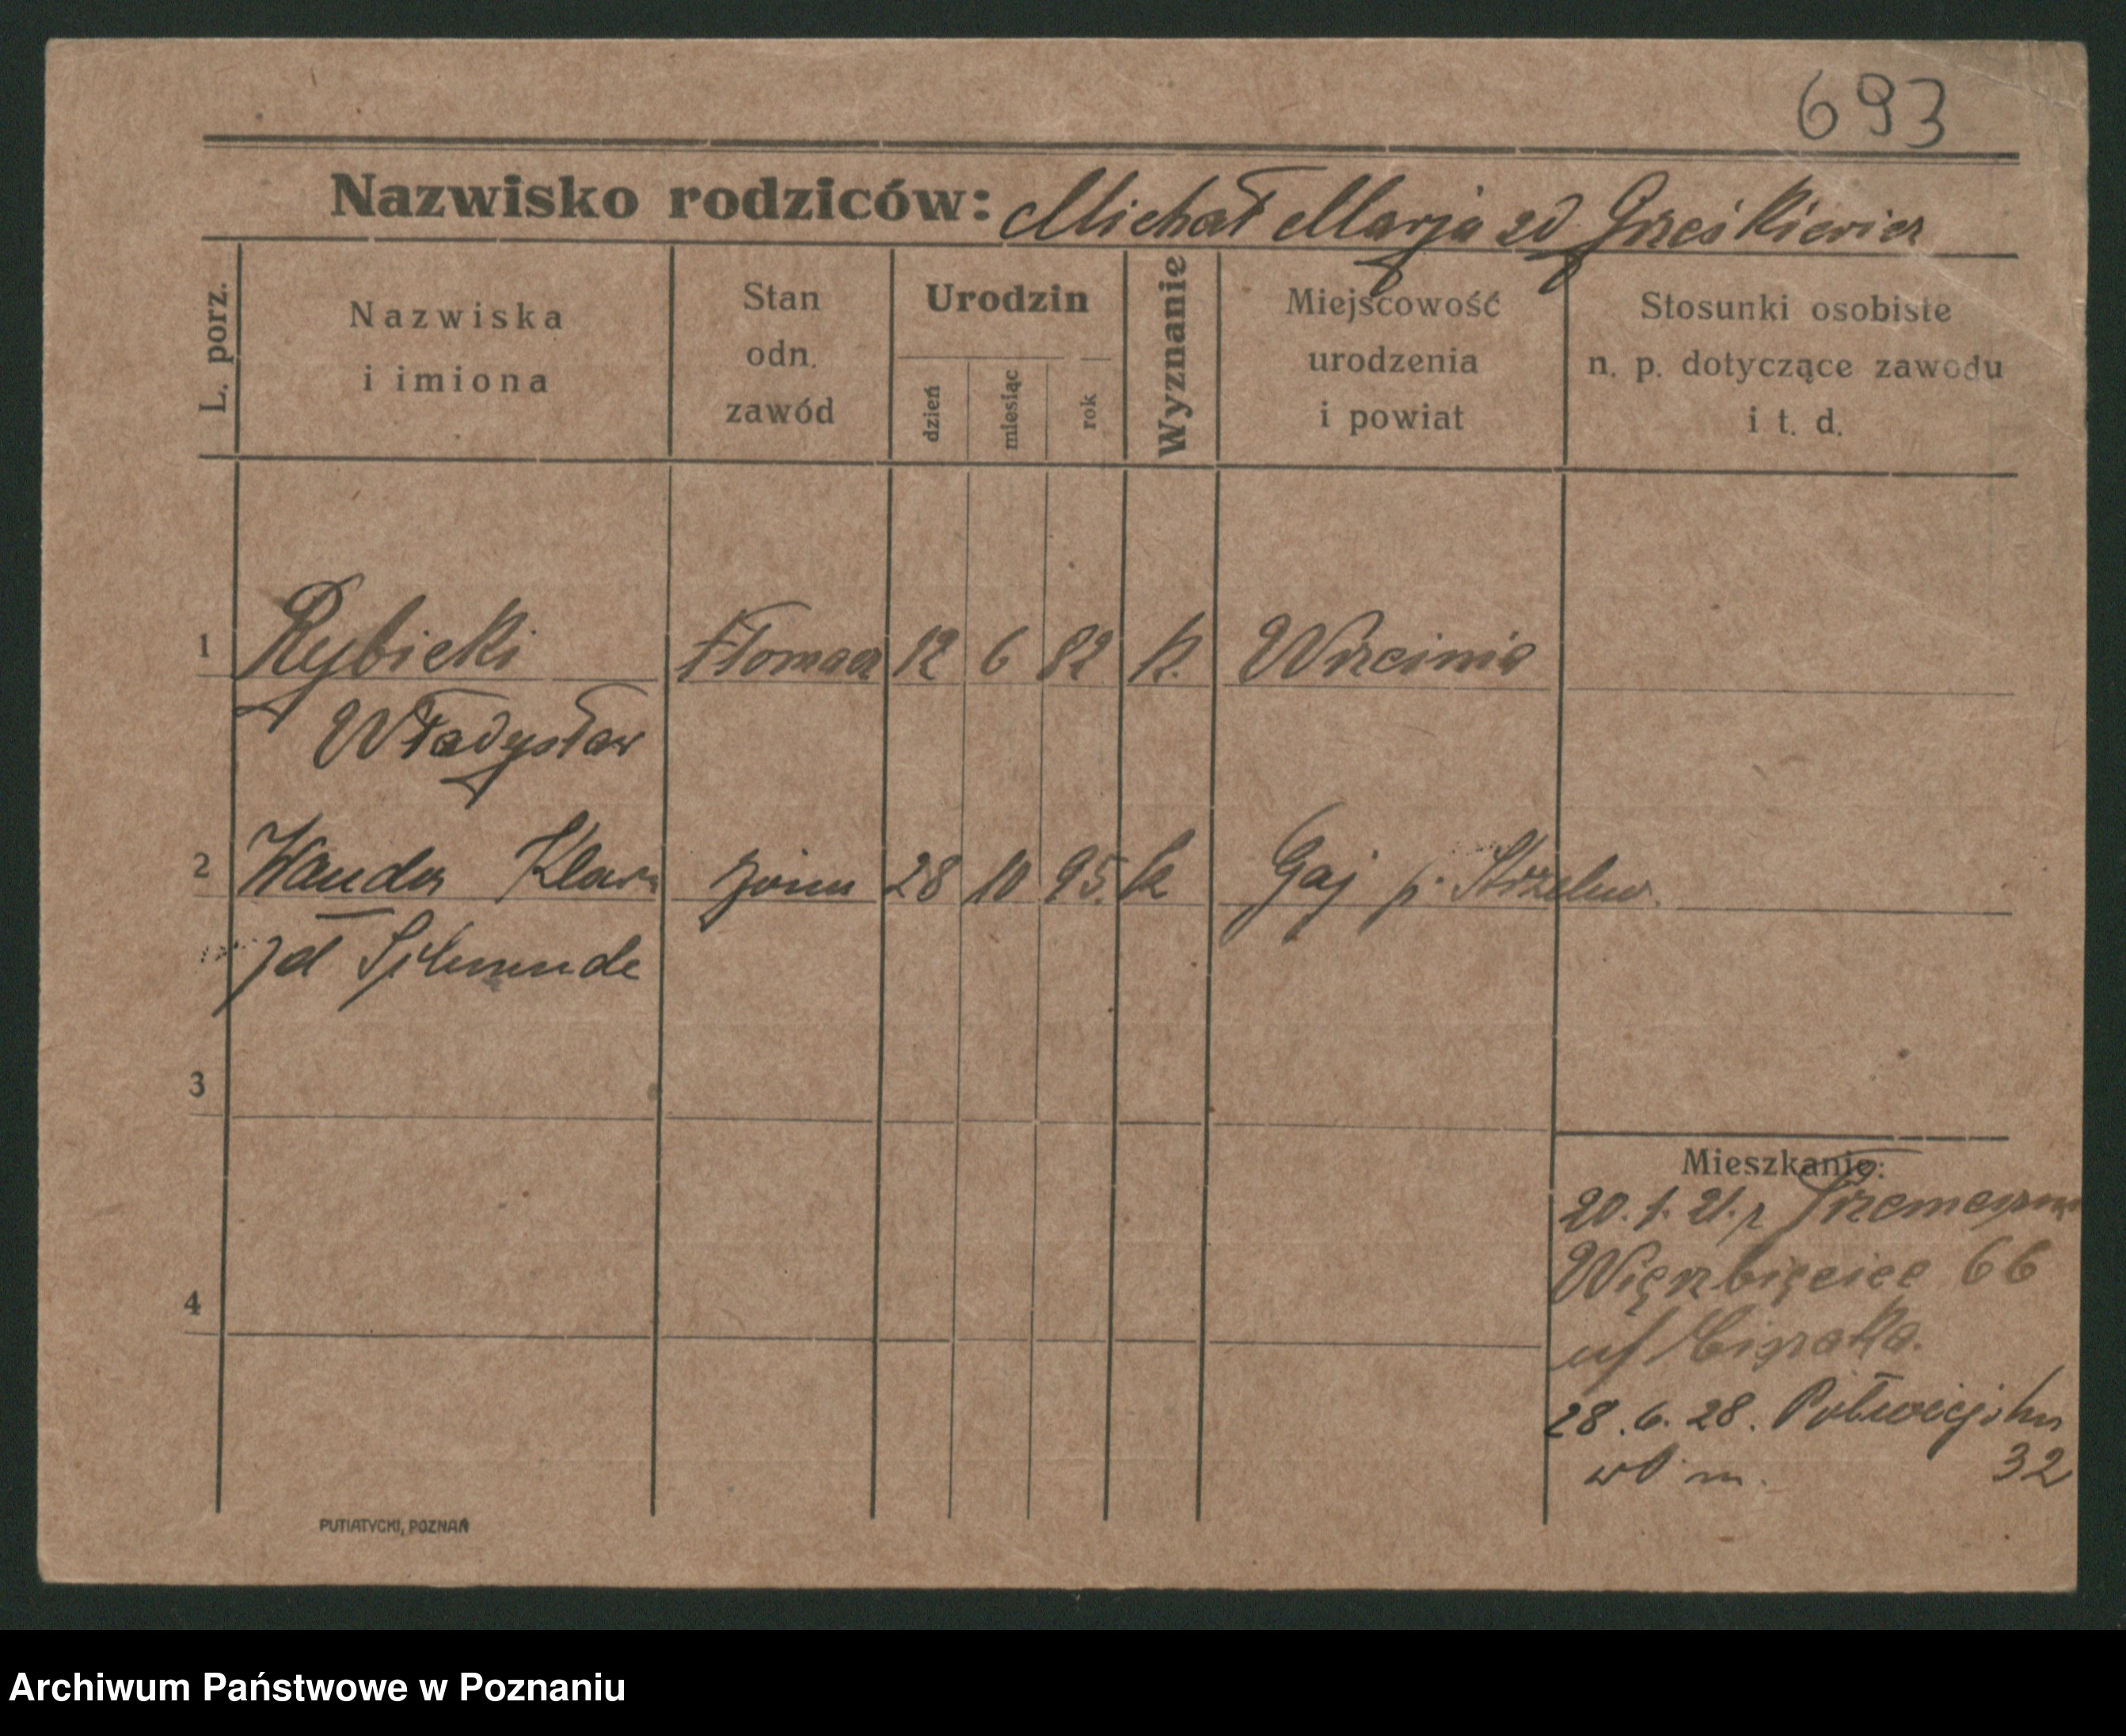 693
Nazwisko rodziców: Michał Marja zd Grześkiewicz
L. porz.
Nazwiska
i imiona
Stan
odn.
zawód
Urodzin
dzień
miesiąc
rok
Wyznanie
Miejscowość
urodzenia
i powiat
Stosunki osobiste
n. p. dotyczące zawodu
i t. d.
1 Rybicki tłomacz 12 6 82 k.
Władysław
2 Wanda Klara żona 28 10 95. k Gaj p. Strzelno.
zd
3
Mieszkanie:
20. 1. 21. z
Wierzbięcice 66
4
28. 6. 28. Półwiejska
32
PUTIATYCKI, POZNAŃ
Archiwum Państwowe w Poznaniu